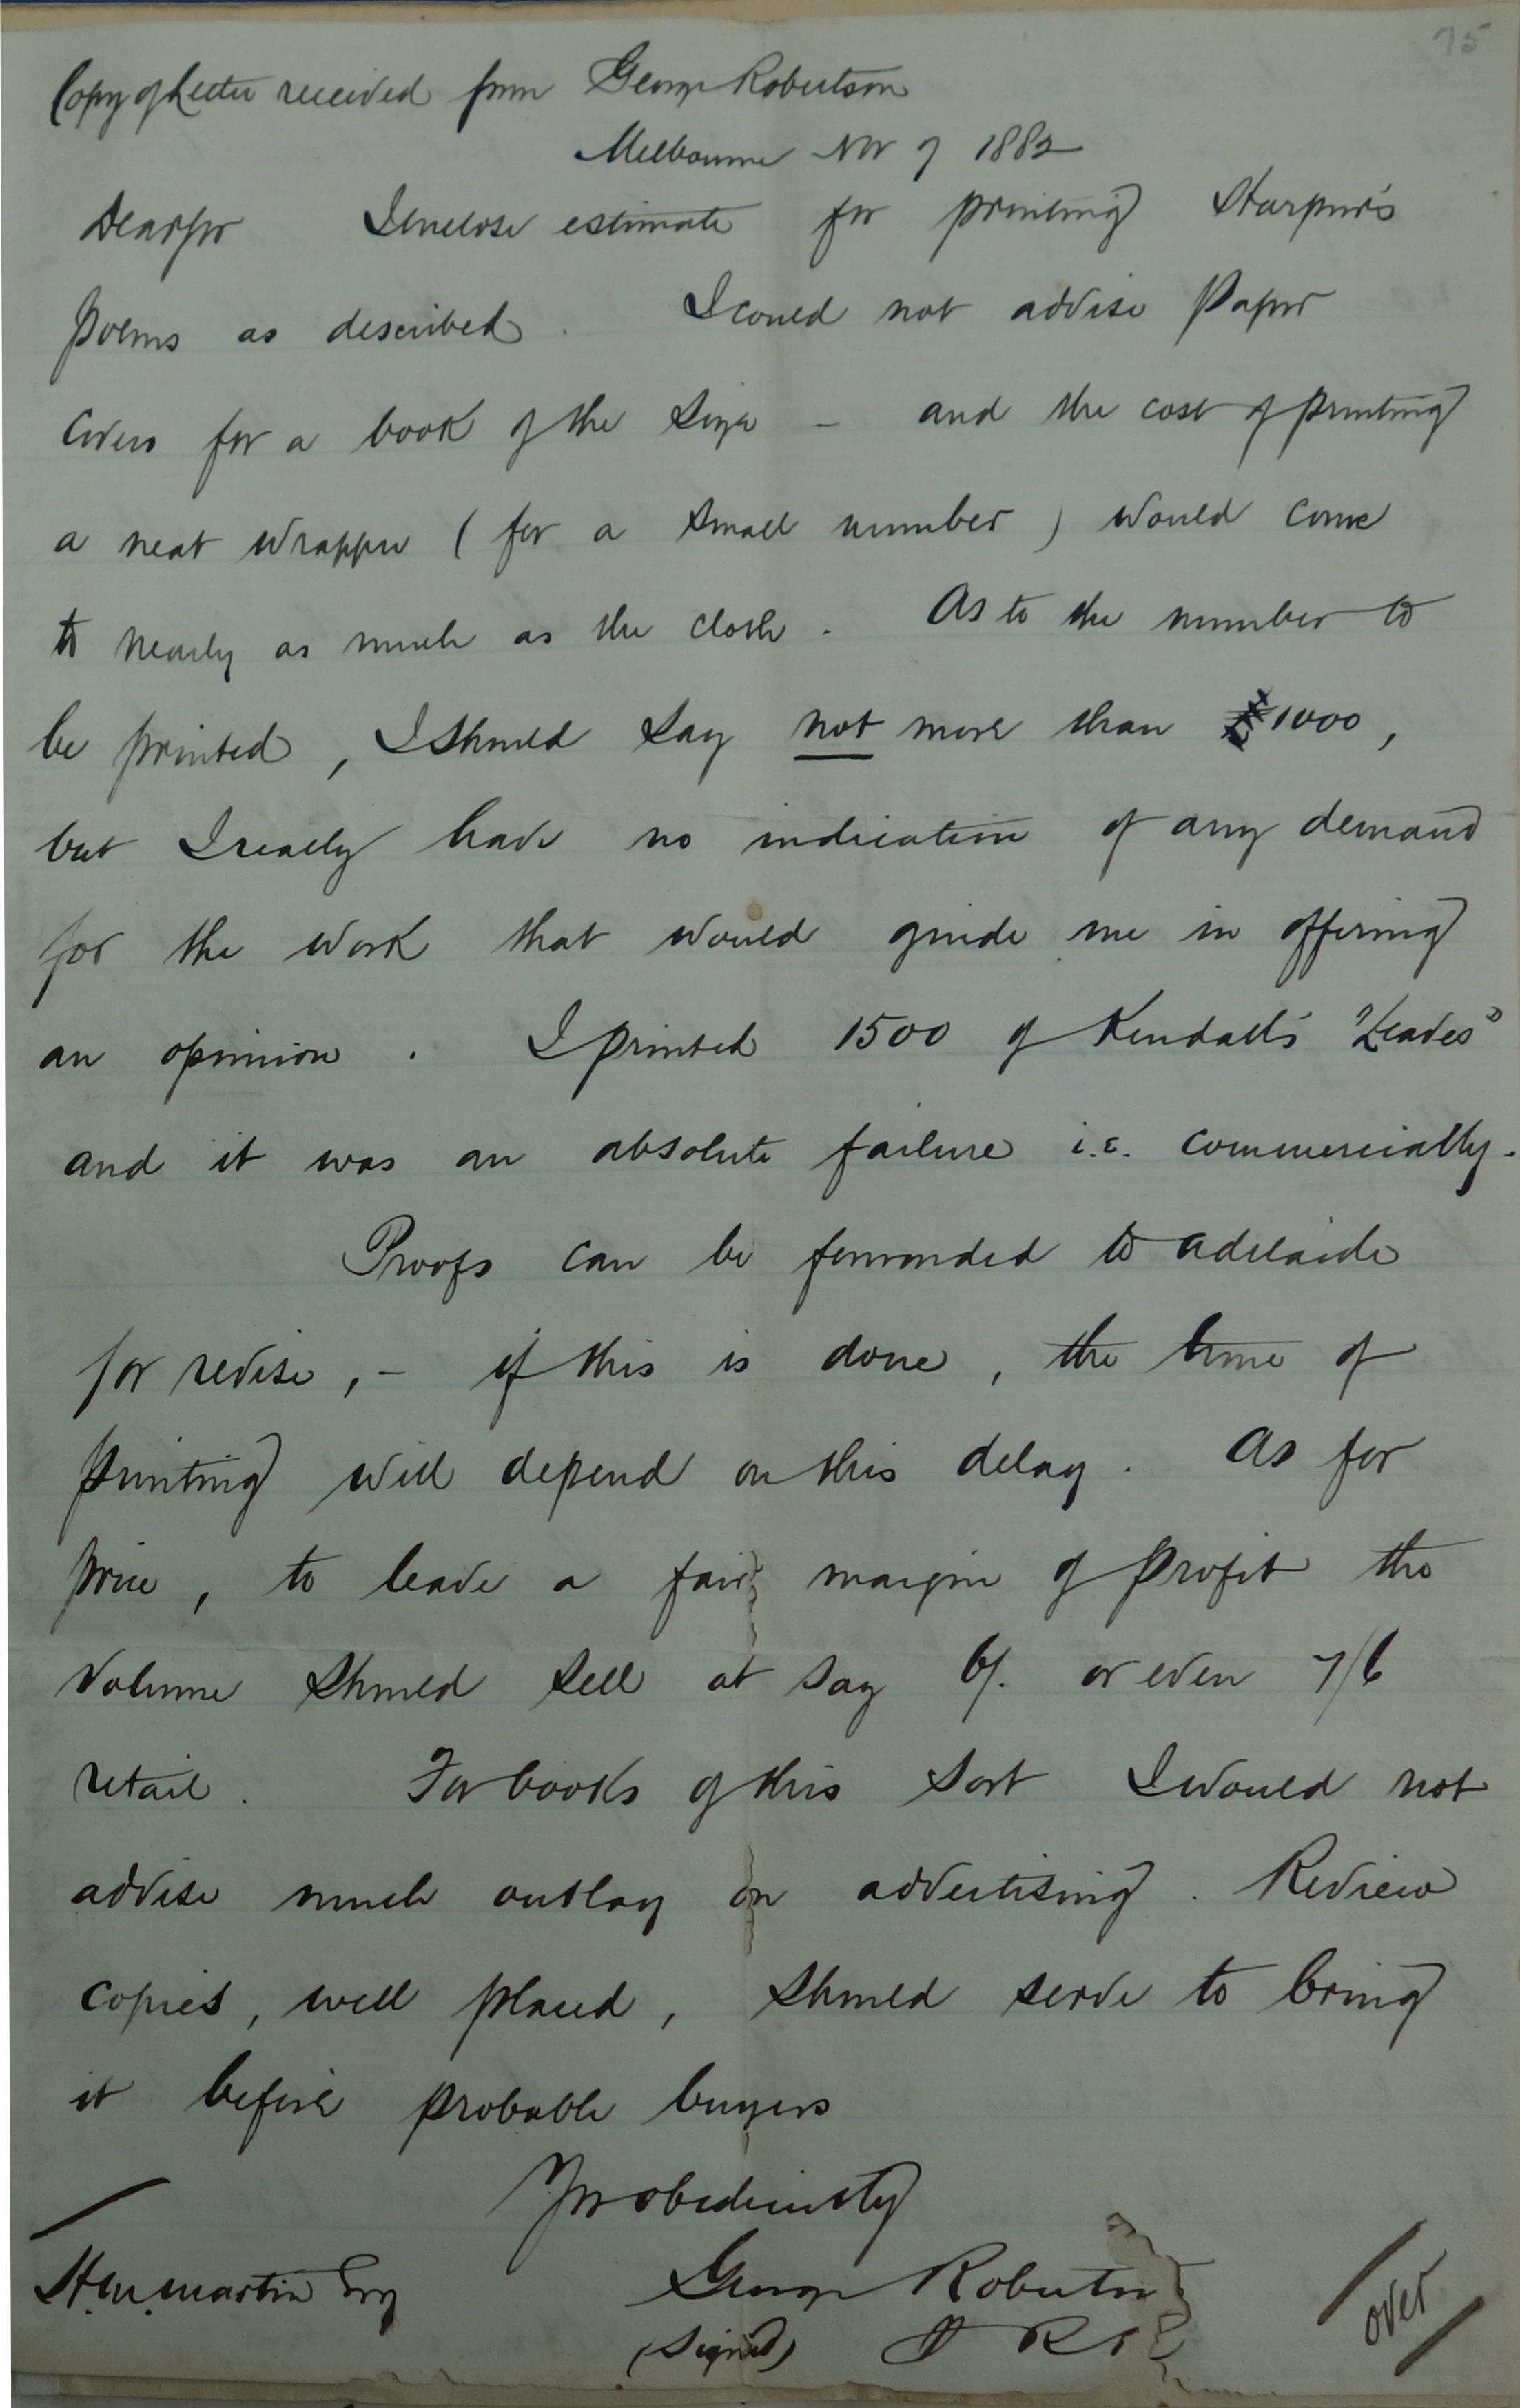 75
Copy of Letter received from George Robertson
Melbourne Nov 7 1882
Dear Sir I enclose estimate for printing Harpur's
poems as described. I could not advise Paper
Covers for a book of the size – and the cost of printing
a neat wrapper (for a small number) would come
to nearly as much as the cloth. As to the number to
be printed, I should say not more than 1000,
but I really have no indication of any demand
for the work that would guide me in offering
an opinion. I printed 1500 of Kendall's "Leaves"
and it was an absolute failure i.e. commercially.
Proofs can be forwarded to Adelaide
for revise, – if this is done, the time of
printing will depend on this delay. As for
price, to leave a fair margin of profit the
volume should sell at say 6/. or even 7/6
retail. For books of this sort I would not
advise much outlay on advertising. Review
copies, well placed, should serve to bring
it before probable buyers
Yrs obediently
H.M. Martin Esq George Robertson
(signed)
over